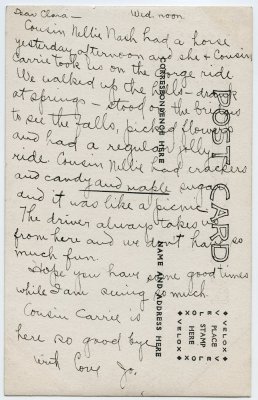 Dear Clara— Wed. noon.
Cousin Nellie Nash had a horse
yesterday afternoon and she & Cousin
Carrie took us on the gorge ride
We walked up the hills - drank
at springs - stood on the bridge
to see the falls, picked flowers
and had a regular jolly
ride. Cousin Nellie had crackers
and candy and maple sugar
and it was like a picnic.
The driver always takes us
from here and we don't have so
much fun.
Hope you have some good times
while I am seeing so much.
Cousin Carrie is
here so good bye
with love Jo.
POST CARD
CORRESPONDENCE HERE
NAME AND ADDRESS HERE
VELOX
PLACE
STAMP
HERE
VELOX